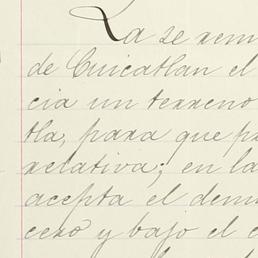 La ze rem
de Cuicatlan el
cia un terreno
tla, para que pr
relativa; en la
acepta el dem
cero y bajo el c